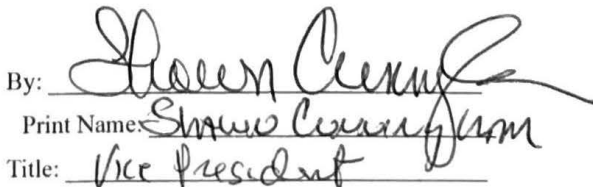 By: Shawn Cunningham
Print Name: Shawn Cunningham
Title: Vice President